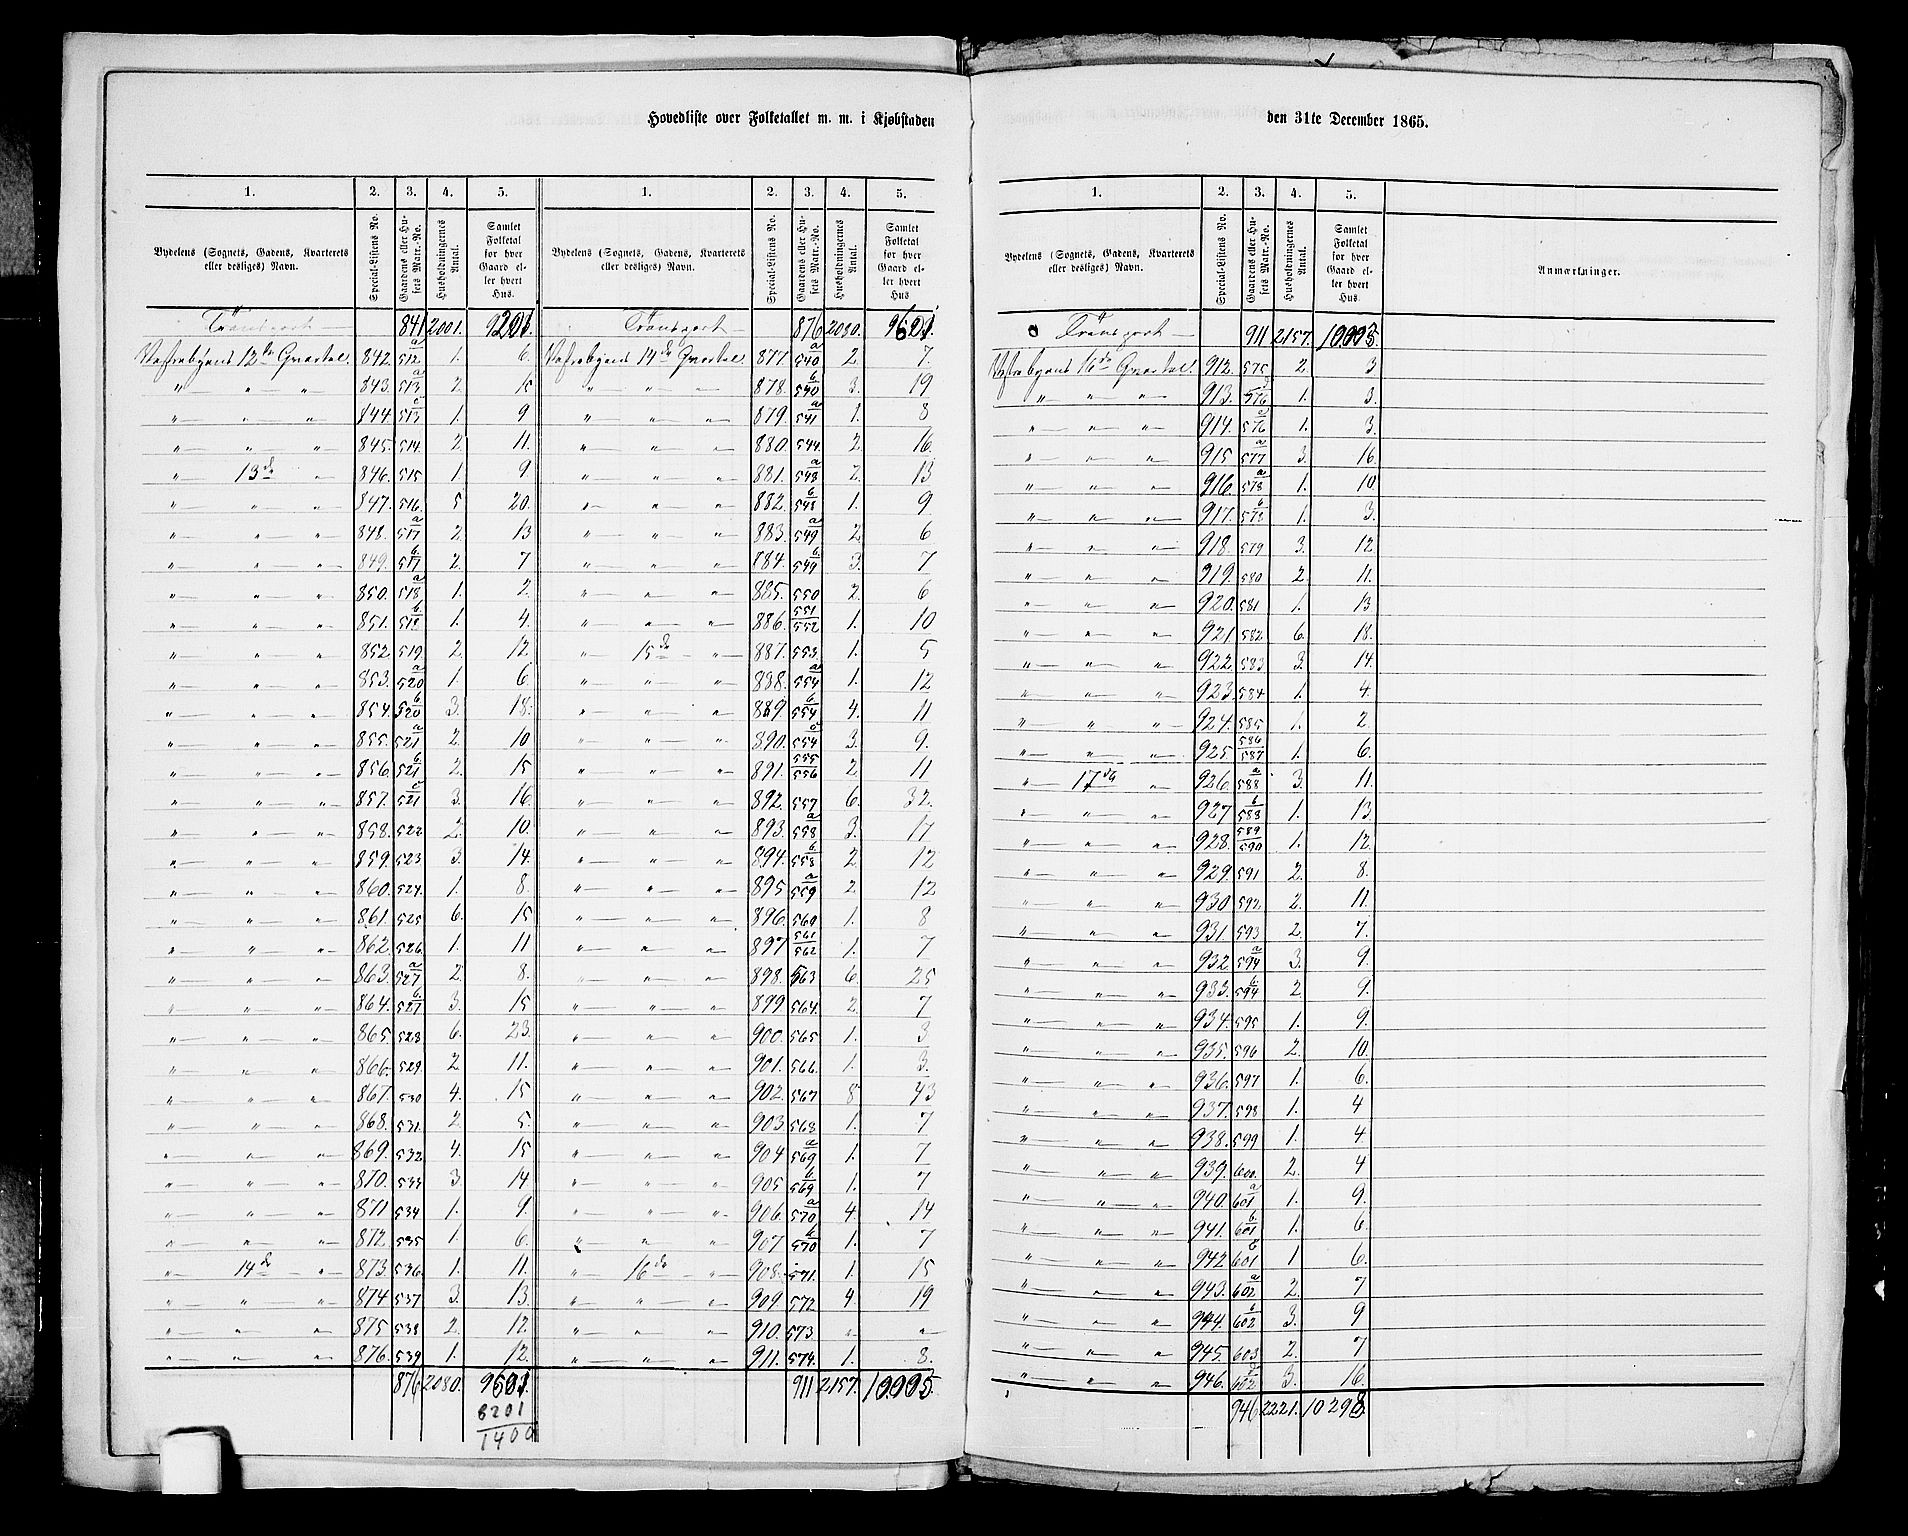 Hovedliste over Folketallet m. m. i Kjøbstaden
1. 2. 3. 4. 5. 1. 2. 3. 4. 5.
Bydelens (Sognets, Gadens, Kvarterets eller desliges) Navn. Special-Listens No. Gaardens eller Husets Matr.-No. Husholdningernes Antal. Samlet Folketal for hver Gaard eller hvert Hus. Bydelens (Sognets, Gadens, Kvarterets eller desliges) Navn. Special-Listens No. Gaardens eller Husets Matr.-No. Husholdningernes Antal. Samlet Folketal for hver Gaard eller hvert Hus
Transport — 841 2001. 9201. Transport — 876 2080. 9601.
12te Qvartal. 842. 512 a 1. 6. 14de Qvartal 877. 540 a 2. 7.
" " " 843. 513 a 2. 15 " " " 878. 540 b 3. 19
" " " 844. 513 1. 9 " " " 879. 541 a 1. 8
" " " 845. 514. 2. 11. " " " 880. 544. 2. 16.
" 13de " 846. 515 1. 9 " " " 881. 548 a 2. 13
" " " 847. 516. 5 20. " " " 882. 548 b 1. 9
" " " 848. 517 a 2. 13 " " " 883. 549 a 2. 6
" " " 849. 517 b 2. 7 " " " 884. 549 b 3. 7
" " " 850. 518 a 1. 2. " " " 885. 550 2. 6
" " " 851. 518 b 1. 4. " " " 886. 551/552 1. 10
" " " 852. 519. 2. 12. " 15de " 887. 553. 1. 5
" " " 853. 520 a 1. 6. " " " 888. 554 a 1. 12
" " " 854. 520 b 3. 18. " " " 889. 554 b 4. 11
" " " 855. 521 a 2. 10 " " " 890. 554 c 3. 9.
" " " 856. 521 b 2. 15 " " " 891. 555/556 2. 11
" " " 857. 521 c 3. 16. " " " 892. 557 6. 32.
" " " 858. 522 2. 10. " " " 893. 558 a 3. 17
" " " 859. 523 3. 14. " " " 894. 558 b 2. 12
" " " 860. 524. 1. 8. " " " 895 559 a 2. 12
" " " 861. 525 6. 15 " " " 896. 560 1. 8
" " " 862. 526. 1. 11 " " " 897 561/562 1. 7
" " " 863. 527 a 2. 8. " " " 898. 563 6. 25
" " " 864. 527 b 3. 15 " " " 899 564. 2. 7
" " " 865. 528 6. 23. " " " 900. 565 1. 3
" " " 866. 529. 2. 11. " " " 901. 566. 1. 3.
" " " 867. 530 4. 15 " " " 902. 567 8 43
" " " 868. 531. 2. 5. " " " 903 568 1. 7
" " " 869. 532. 4. 15 " " " 904 569 a 1. 7
" " " 870. 533 3. 14 " " " 905 569 b 1. 7
" " " 871 534 1. 9 " " " 906. 570 a 4. 14
" " " 872. 535 1. 6. " " " 907 570 b 1. 7
" 14de " 873. 536. 1. 11. " 16de " 908. 571. 1. 15
" " " 874 537 3. 13. " " " 909 572 4 19
" " " 875 538 2. 12. " " " 910. 573. " "
" " " 876. 539 1. 12. " " " 911. 574. 1. 8.
876 2080. 9601. 911 2157.
8201
1400
den 31te December 1865.
1. 2. 3. 4. 5.
Bydelens (Sognets, Gadens, Kvarterets eller desliges) Navn. Special-Listens No. Gaardens eller Husets Matr.-No. Husholdningernes Antal. Samlet Folketal for hver Gaard eller hvert Hus. Anmærkninger.
Transport — 911 2157.
16de Qvartal. 912. 575 2. 3
" " " 913. 576 1. 3.
" " " 914. 576 1. 3.
" " " 915 577 a 3. 16
" " " 916. 578 a 1. 10
" " " 917. 578 b 1. 3.
" " " 918. 579 3. 12.
" " " 919. 580 2. 11.
" " " 920. 581 1. 13
" " " 921. 582 6. 18.
" " " 922. 583 3. 14.
" " " 923. 584 1. 4
" " " 924. 585 1. 2.
" " " 925. 586/587 1. 6.
" 17de " 926. 588 a 3. 11.
" " " 927 588 b 1. 13.
" " " 928. 589/590 1. 12.
" " " 929. 591 2. 8.
" " " 930 592. 2. 11.
" " " 931. 593 2. 7.
" " " 932. 594 a 3. 9.
" " " 933. 594 b 2. 9.
" " " 934. 595 1. 9.
" " " 935. 596 2. 10.
" " " 936. 597 1. 6.
" " " 937. 598 1. 4
" " " 938. 599 1. 4
" " " 939. 600. 2. 4
" " " 940. 601 a 1. 9.
" " " 941. 601 b 1. 6.
" " " 942 601 c 1 6.
" " " 943. 602 a 2. 7
" " " 944. 602 b 3. 9
" " " 945. 603 2. 7
" " " 946. 602 3. 16.
946 2221. 10298.